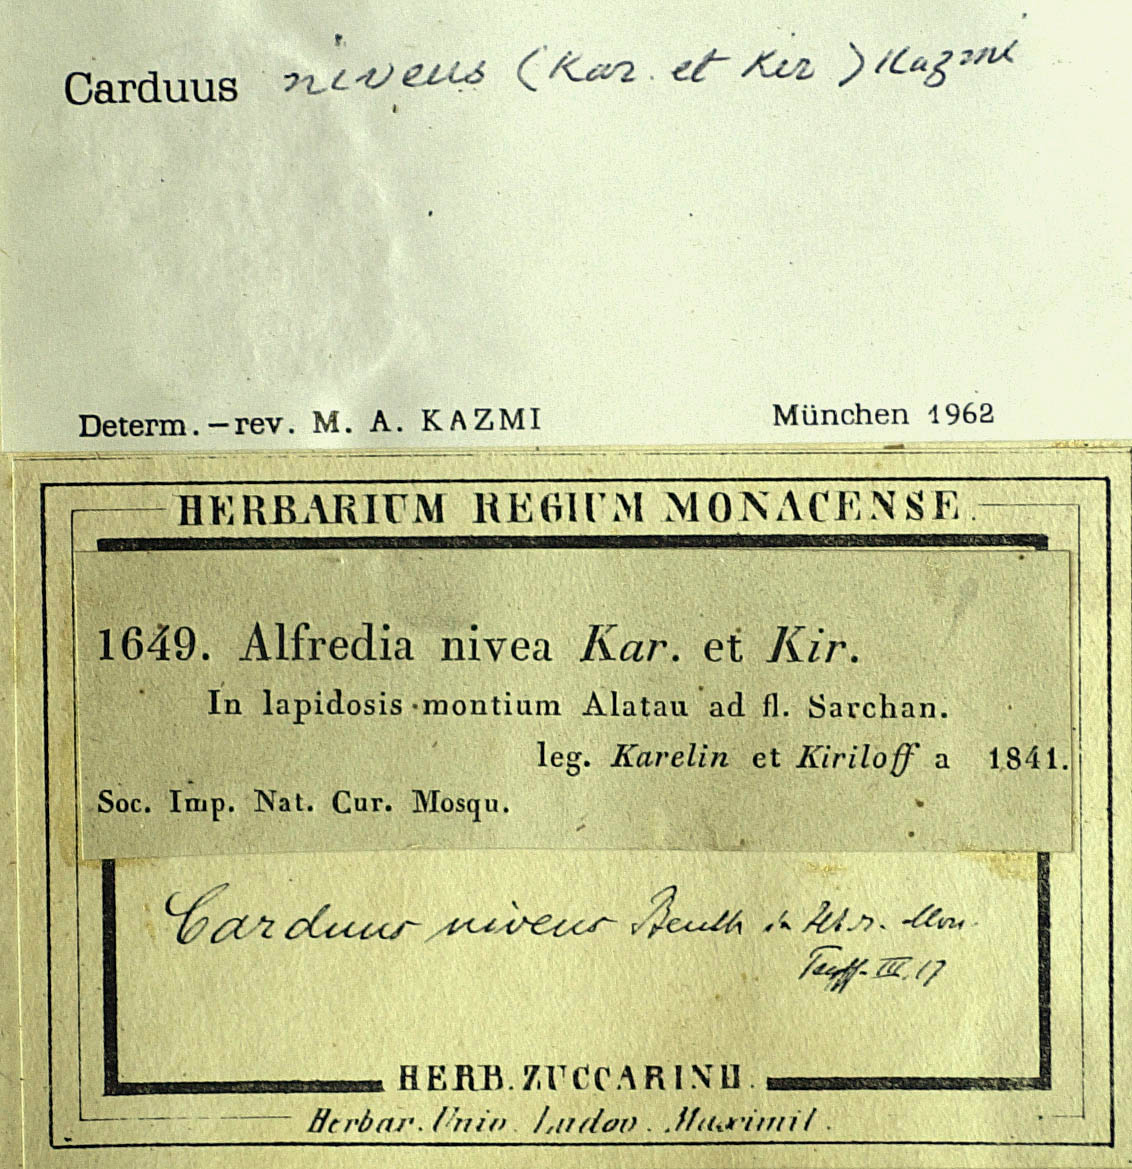 Carduus niveus (Kar. et Kir) Kazmi
Determ.-rev. M. A. KAZMI München 1962
HERBARIUM REGIUM MONACENSE.
1649. Alfredia nivea Kar. et Kir.
In lapidosis montium Alatau ad fl. Sarchan.
leg. Karelin et Kiriloff a 1841.
Soc. Imp. Nat. Cur. Mosqu.
Carduus niveus in
III. 17
HERB. ZUCCARINII.
Herbar. Univ. Ludov. Maximil.